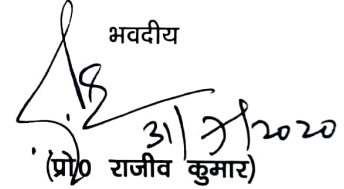 भवदीय
31/7/2020
(प्रो0 राजीव कुमार)